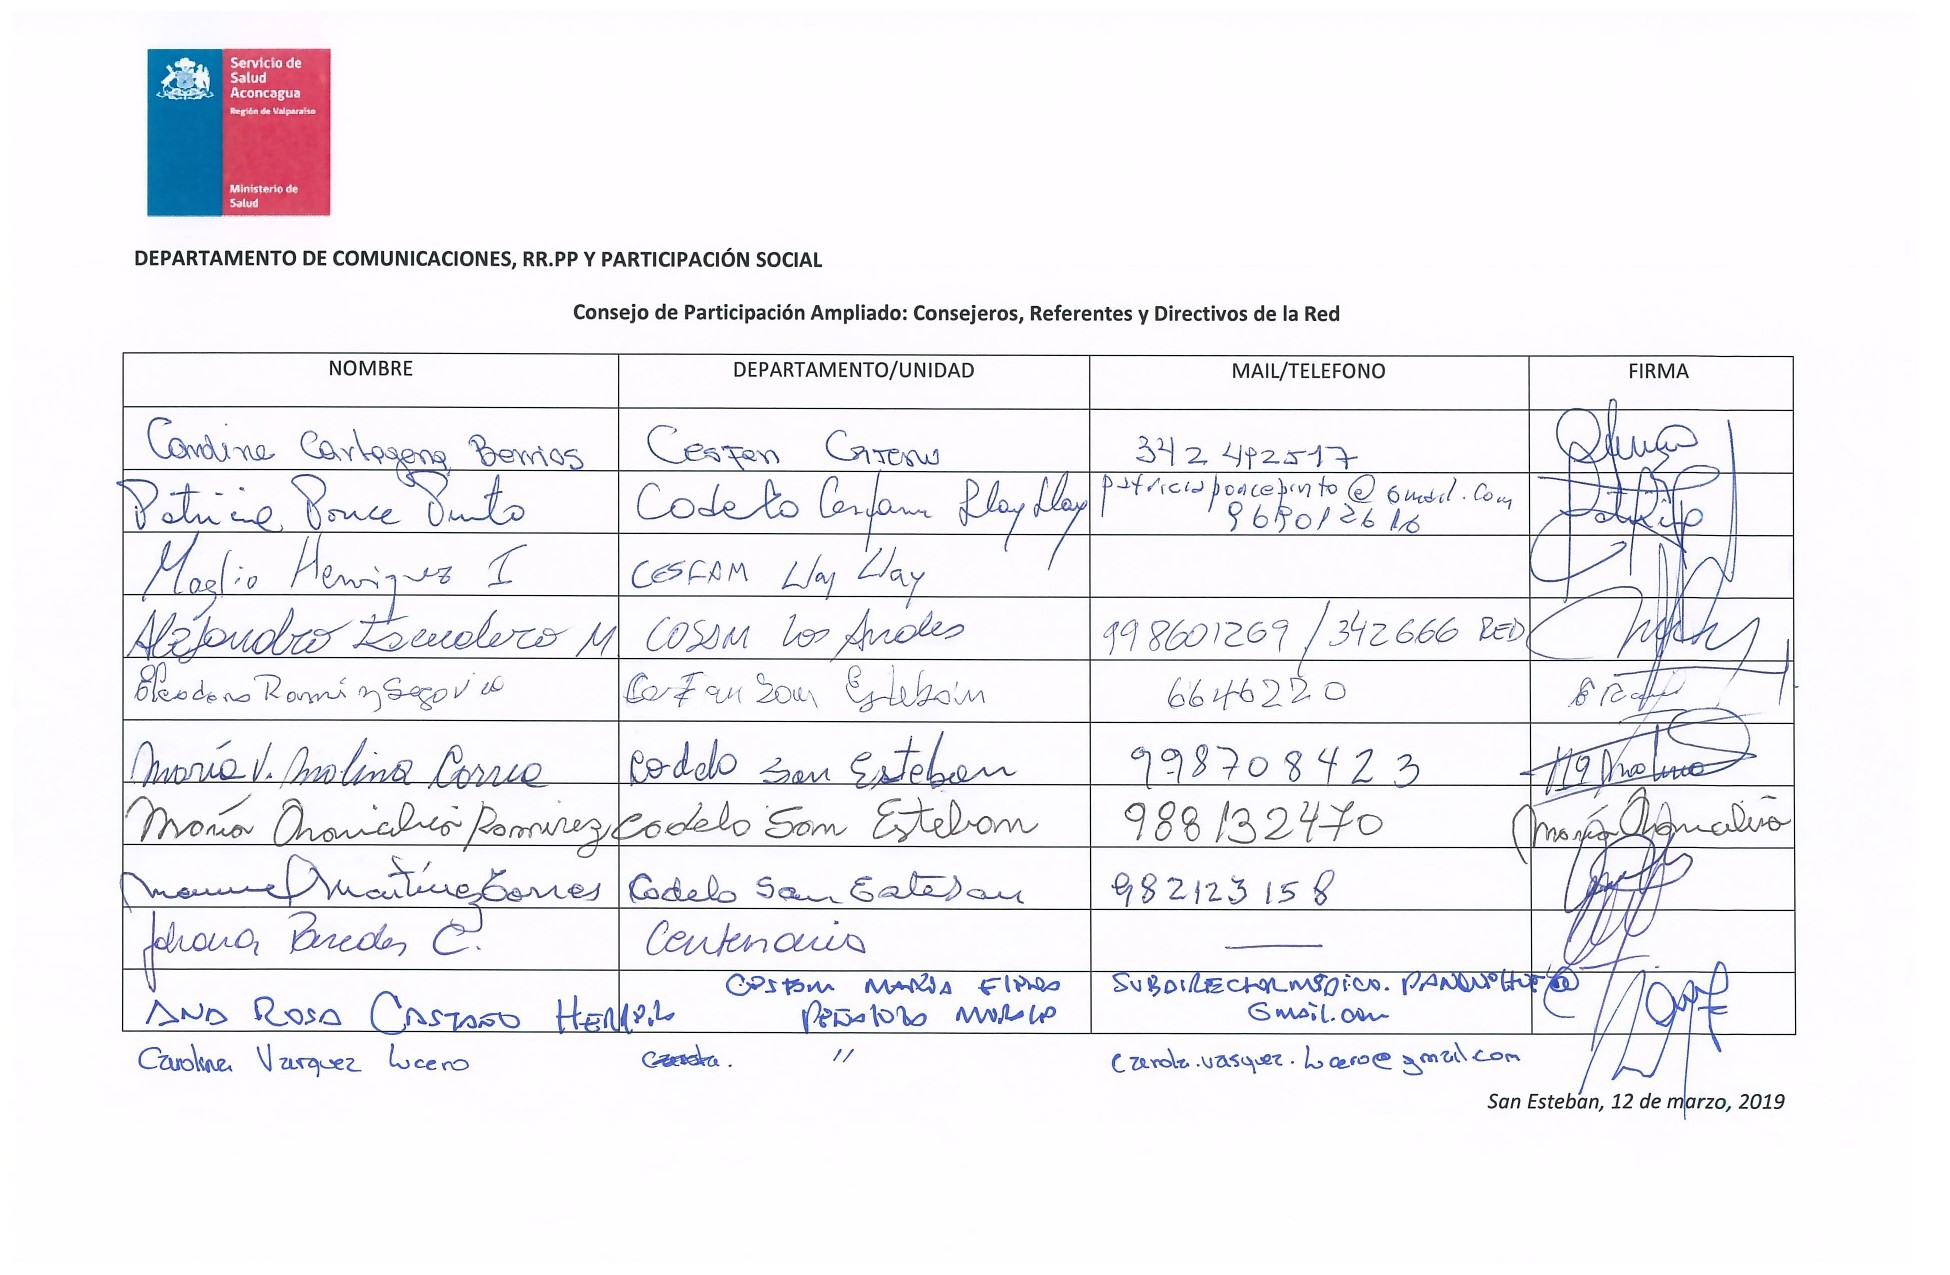 Servicio de
Salud
Aconcagua
Región de Valparaíso
Ministerio de
Salud
DEPARTAMENTO DE COMUNICACIONES, RR.PP Y PARTICIPACIÓN SOCIAL
Consejo de Participación Ampliado: Consejeros, Referentes y Directivos de la Red
NOMBRE DEPARTAMENTO/UNIDAD MAIL/TELEFONO FIRMA
Cartagena Berrios Cesfam 342492517
Patricia Ponce Pinto Codelo Cesfam Llay Llay patriciaponcepinto@gmail.com
Maglio Henriquez I CESFAM Llay Llay
Alejandro Escudero M COSAM Los Andes 998601269 / 342666 RED
Ramírez Segovia Cesfam San Esteban 6646220
María V. Molina Correa Codelo San Esteban 998708423
María Ramirez Codelo San Esteban 988132470 María
Manuel Martínez Torres Codelo San Esteban 982123158
Johana Paredes C. Centenario —
ANA ROSA CASTAÑO CESFAM MARIA SUBDIRECTORMEDICO.PANQUEHUE@
GMAIL.COM
Carolina Vasquez Lucero " carola.vasquez.lucero@gmail.com
San Esteban, 12 de marzo, 2019